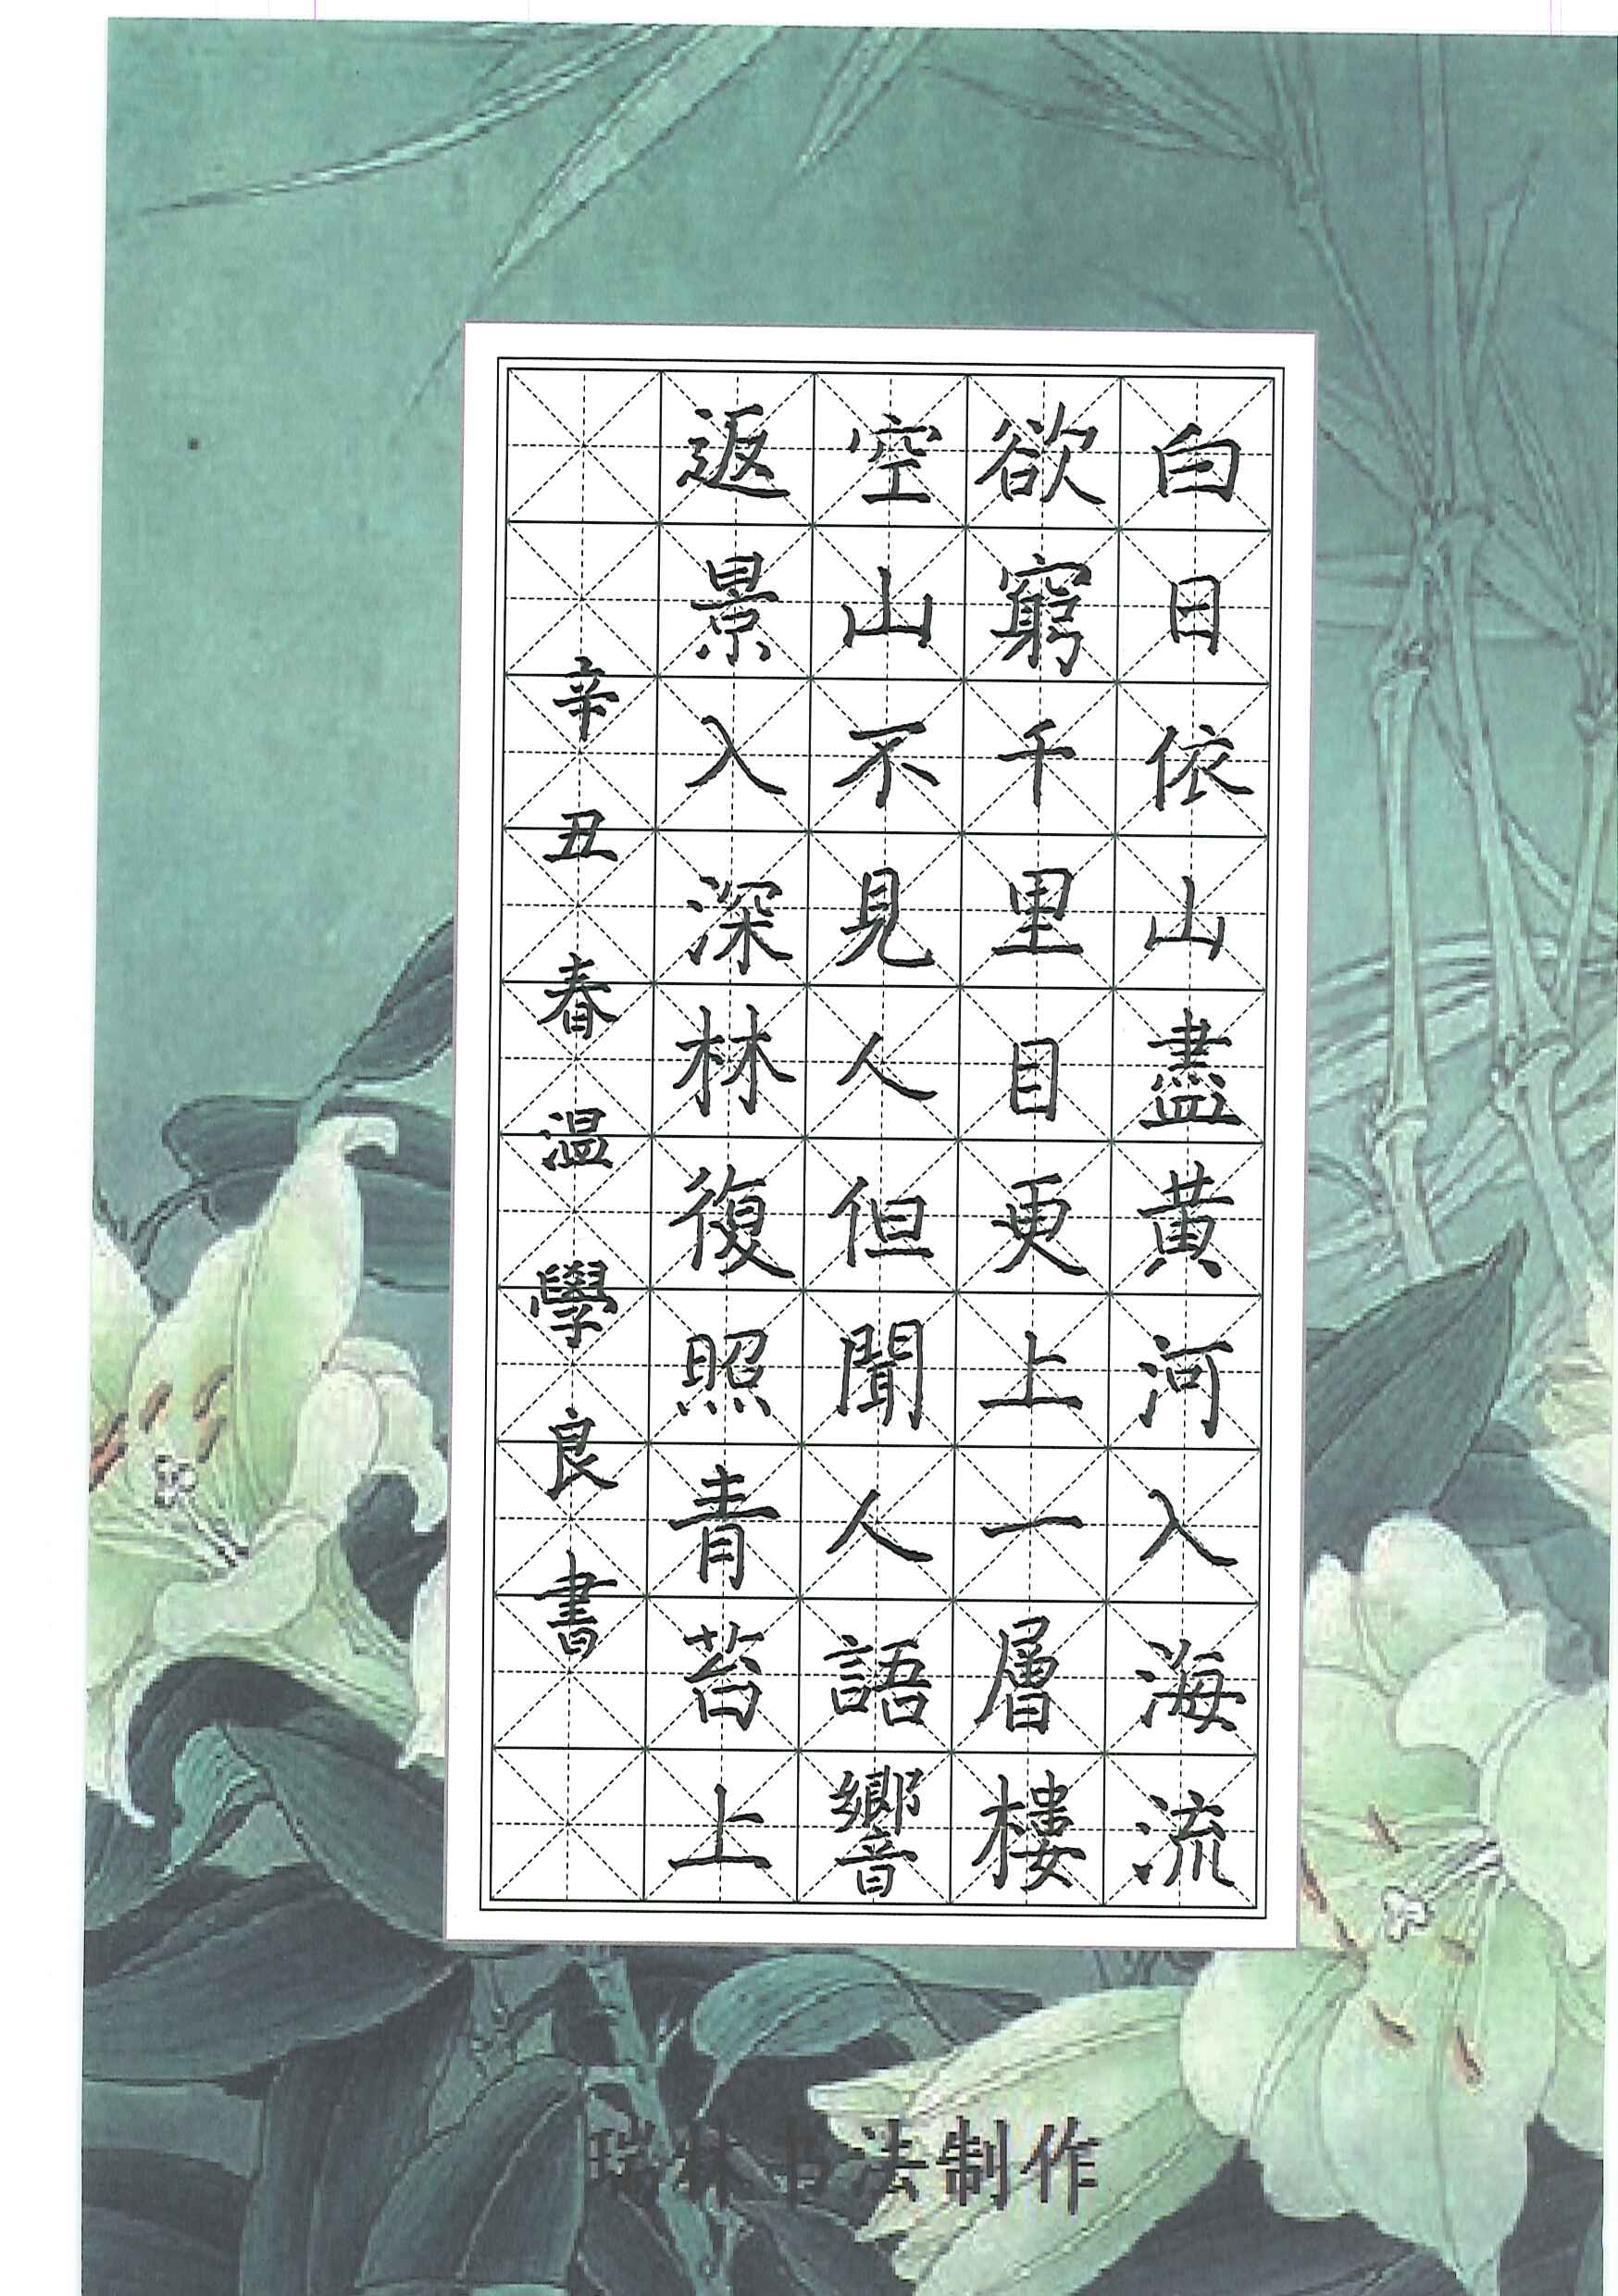 白日依山盡黃河入海流
欲窮千里目更上一層樓
空山不見人但聞人語響
返景入深林復照青苔上
辛丑春温學良書
瑞林书法制作